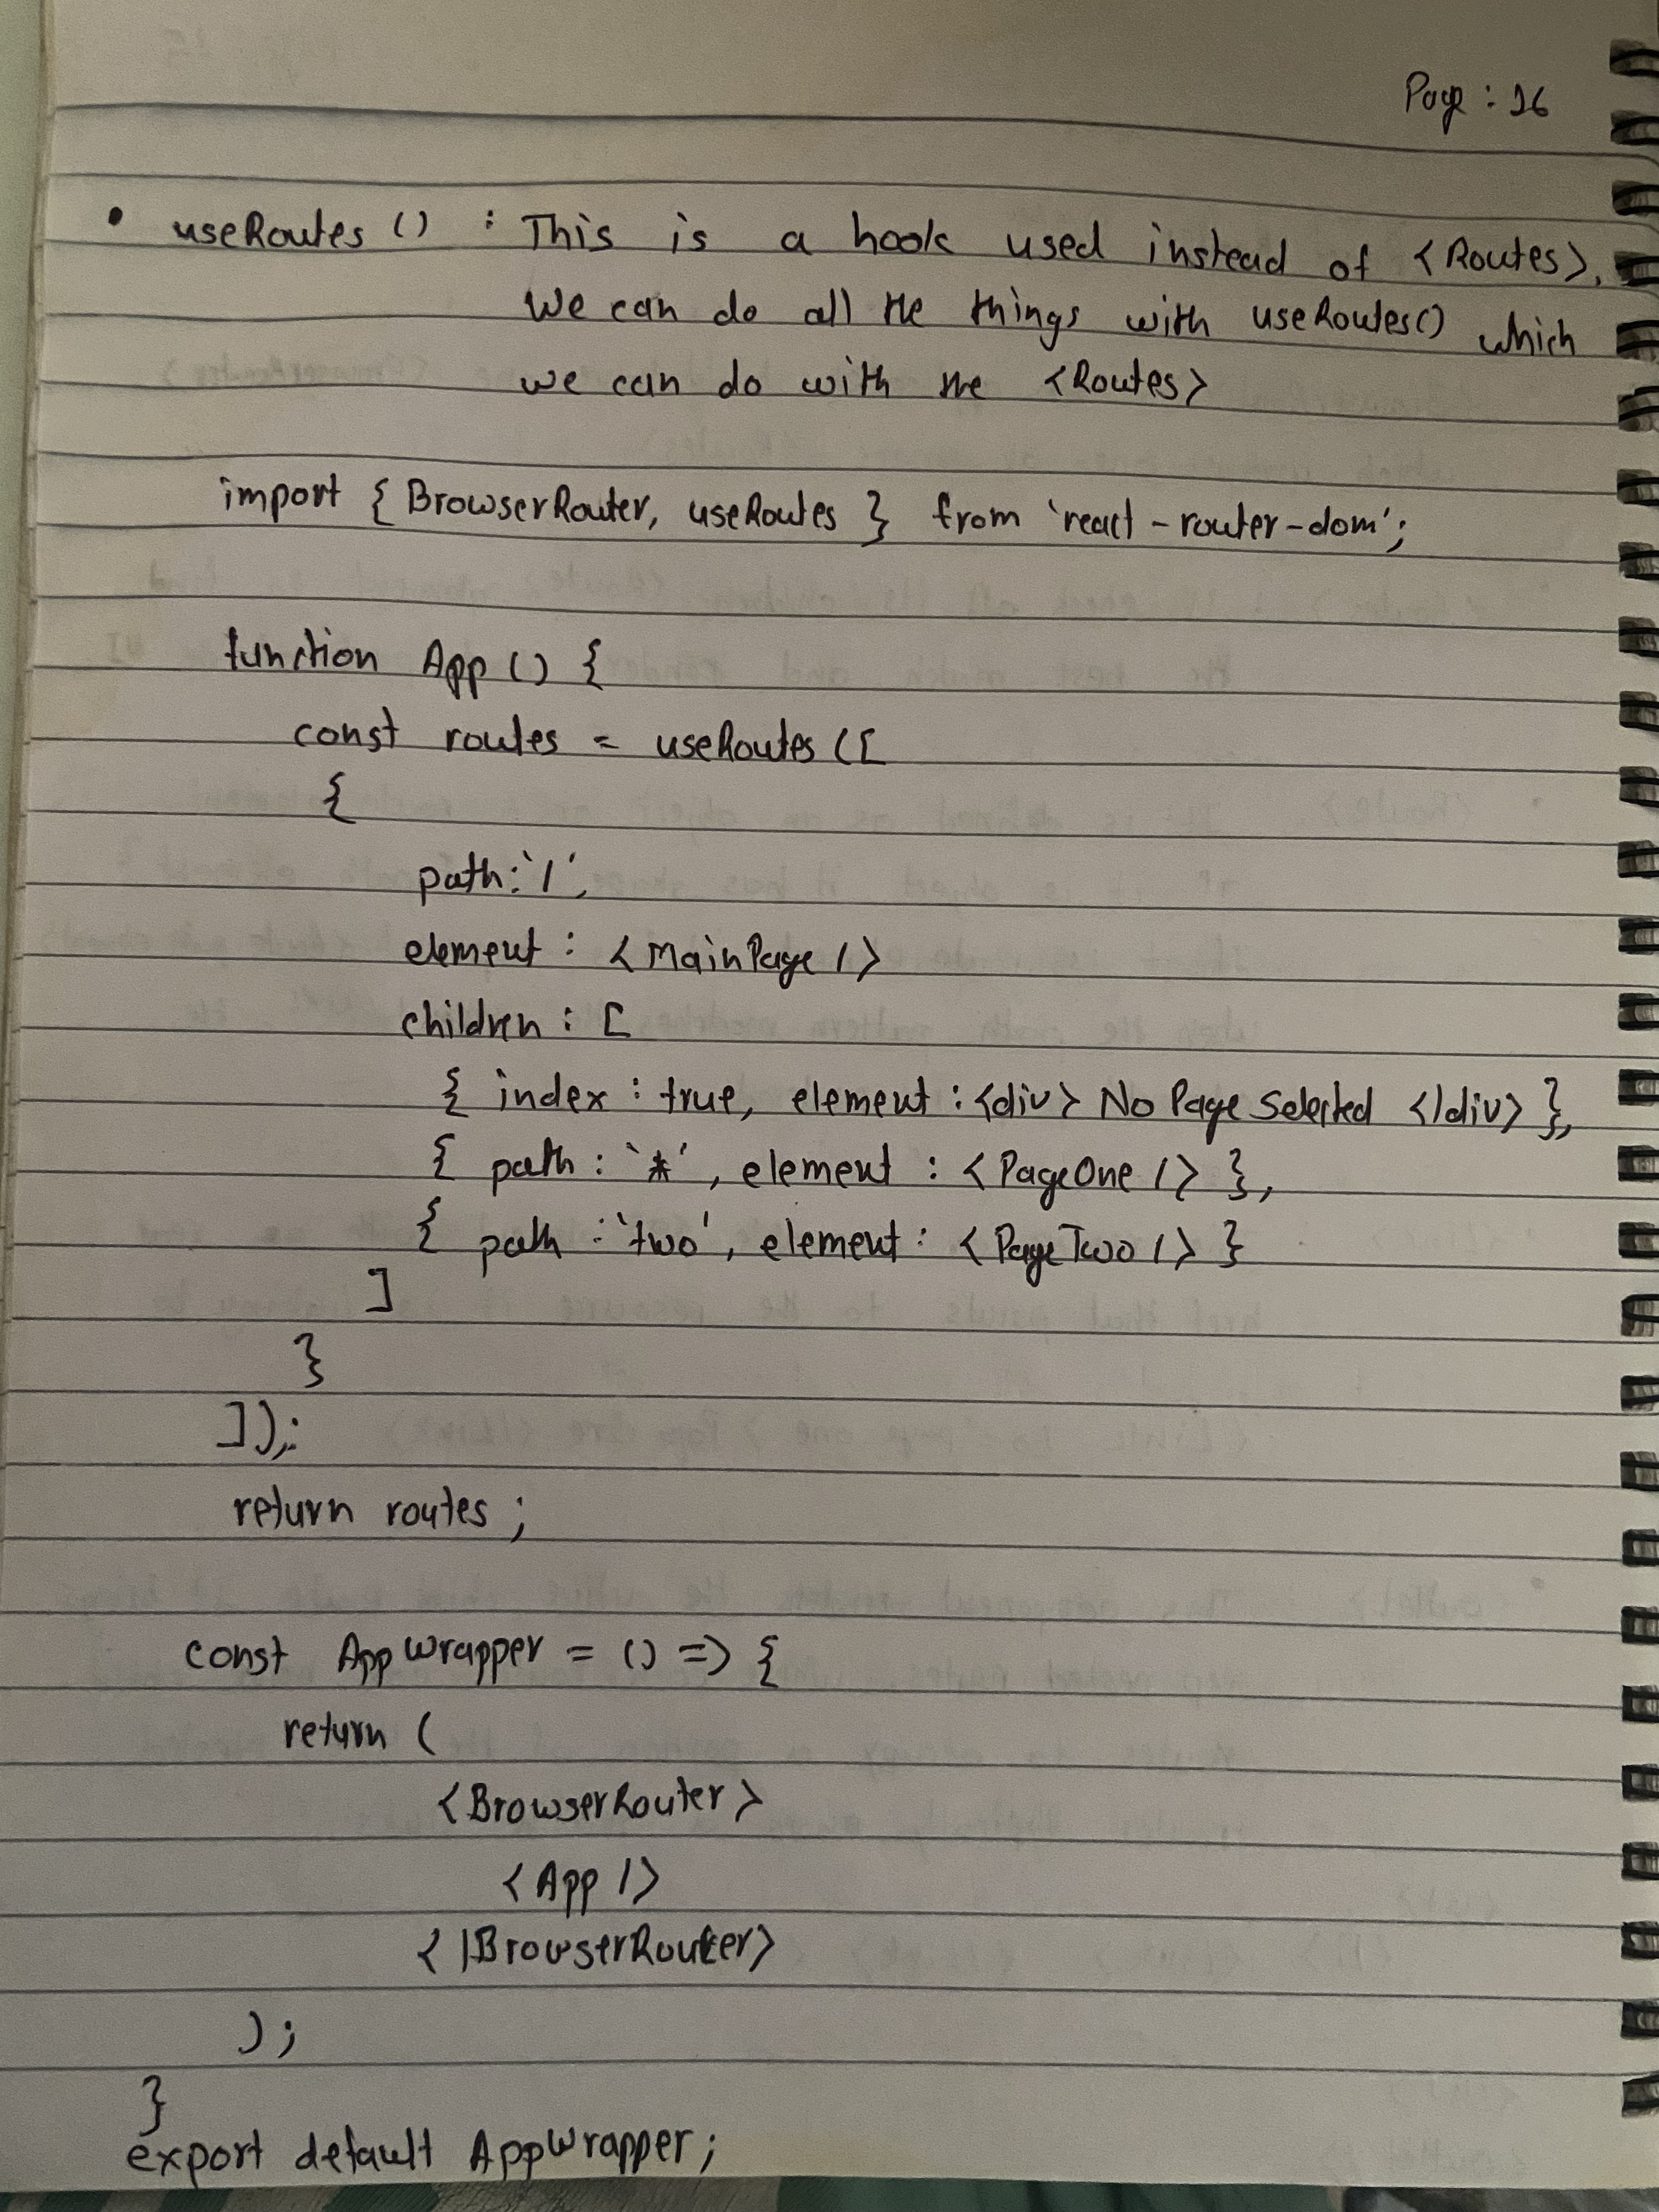 Page : 26
• useRoutes () : This is a hook used instead of <Routes>.
We can do all the things with useRoutes() which
we can do with the <Routes>
import { BrowserRouter, useRoutes } from 'react-router-dom';
function App () {
const routes = useRoutes ([
{
path: '/',
element : <MainPage />
children : [
{ index : true, element : <div> No Page Selected </div> },
{ path : '*', element : <PageOne /> },
{ path : 'two', element : <PageTwo /> }
]
}
]);
return routes ;
const AppWrapper = () => {
return (
<BrowserRouter>
<App />
</BrowserRouter>
);
}
export default AppWrapper;